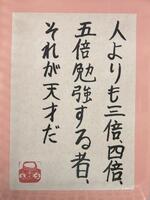 人よりも三倍、四倍、
五倍勉強する者、
それが天才だ